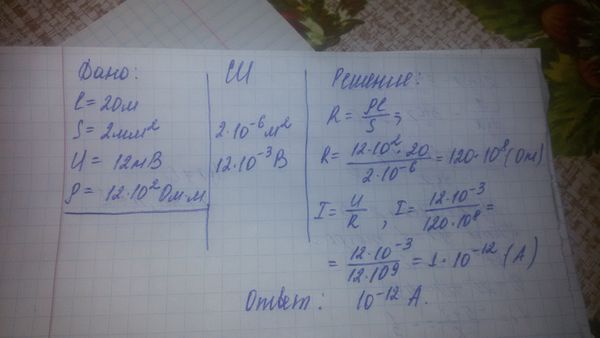 Дано:
l = 20м
S = 2мм²
U = 12мВ
ρ = 12·10² Ом·м
СИ
2·10⁻⁶ м²
12·10⁻³ В
Решение:
R = ρl/S;
R = 12·10²·20/2·10⁻⁶ = 120·10⁸ (Ом)
I = U/R, I = 12·10⁻³/120·10⁸ =
= 12·10⁻³/12·10⁹ = 1·10⁻¹² (А)
Ответ: 10⁻¹² А.